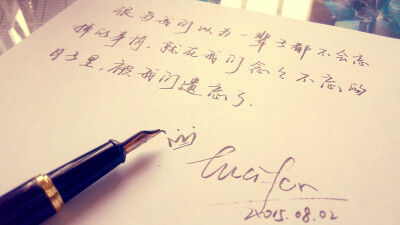 很多我们以为一辈子都不会忘
掉的事情，就在我们念念不忘的
日子里，被我们遗忘了．
Lucifer
2015.08.02